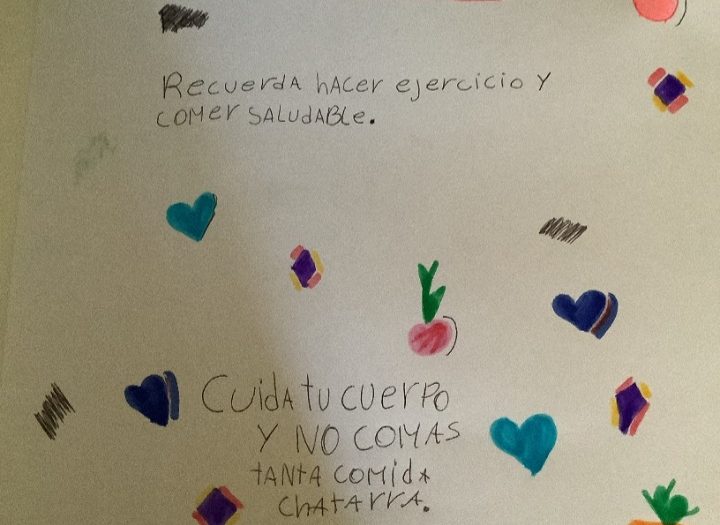 Recuerda hacer ejercicio y
comer saludable.
Cuida tu cuerpo
y no comas
tanta comida
chatarra.